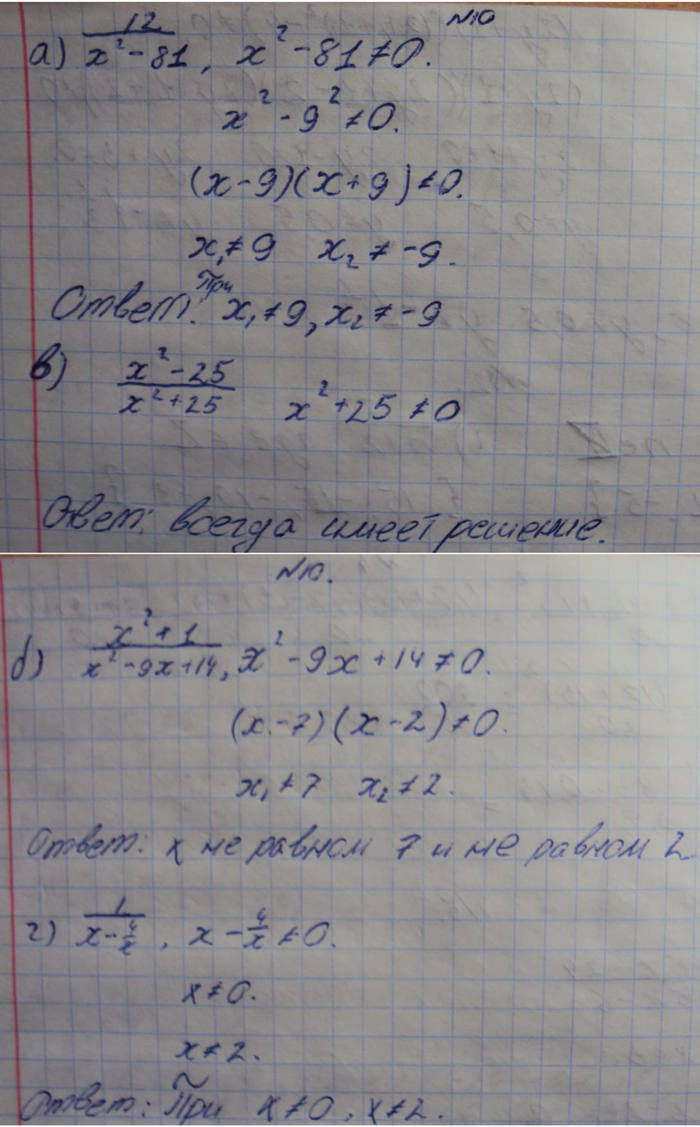 №10
а) 12/(x²-81), x²-81≠0.
x²-9²≠0.
(x-9)(x+9)≠0.
x₁≠9 x₂≠-9.
Ответ: При x₁≠9, x₂≠-9
в) (x²-25)/(x²+25) x²+25≠0
Овет: всегда имеет решение.
№10.
б) (x²+1)/(x²-9x+14), x²-9x+14≠0.
(x-7)(x-2)≠0.
x₁≠7 x₂≠2.
Ответ: x не равном 7 и не равном 2
г) 1/(x-4/x), x-4/x≠0.
x≠0.
x≠2.
Ответ: При x≠0, x≠2.